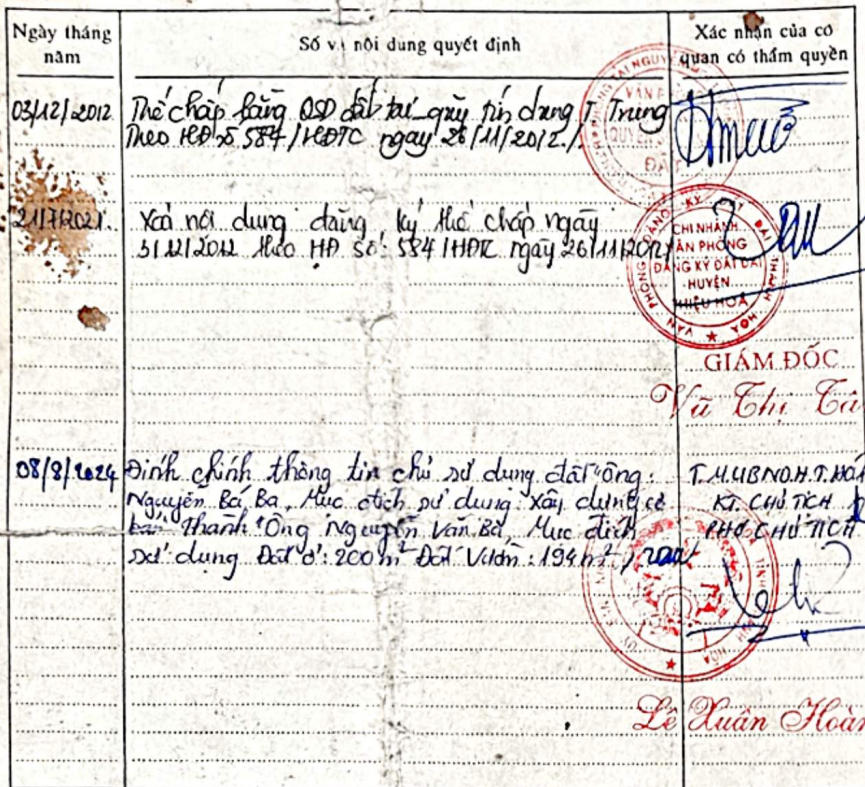 Ngày tháng năm
Số và nội dung quyết định
Xác nhận của cơ quan có thẩm quyền
03/12/2012
Thế chấp bằng QSD đất tại quỹ tín dụng T. Trung
Theo HĐ số 584/HĐTC ngày 26/11/2012./
21/7/2021.
Xoá nội dung đăng ký thế chấp ngày
3/12/2012 theo HĐ số: 584/HĐTC ngày 26/11/2012/
CHI NHÁNH
VĂN PHÒNG
ĐĂNG KÝ ĐẤT ĐAI
HUYỆN
THIỆU HOÁ
GIÁM ĐỐC
Vũ Thị
08/8/2024
Đính chính thông tin chủ sử dụng đất "ông:
Nguyễn Bá Ba, Mục đích sử dụng: Xây dựng cơ
bản Thành "Ông Nguyễn Văn Bá, Mục đích
sử dụng Đất ở: 200m² Đất Vườn: 194m²
T.M.UBND.H.T.HOÁ
KT. CHỦ TỊCH
PHÓ CHỦ TỊCH
Lê Xuân Hoàn